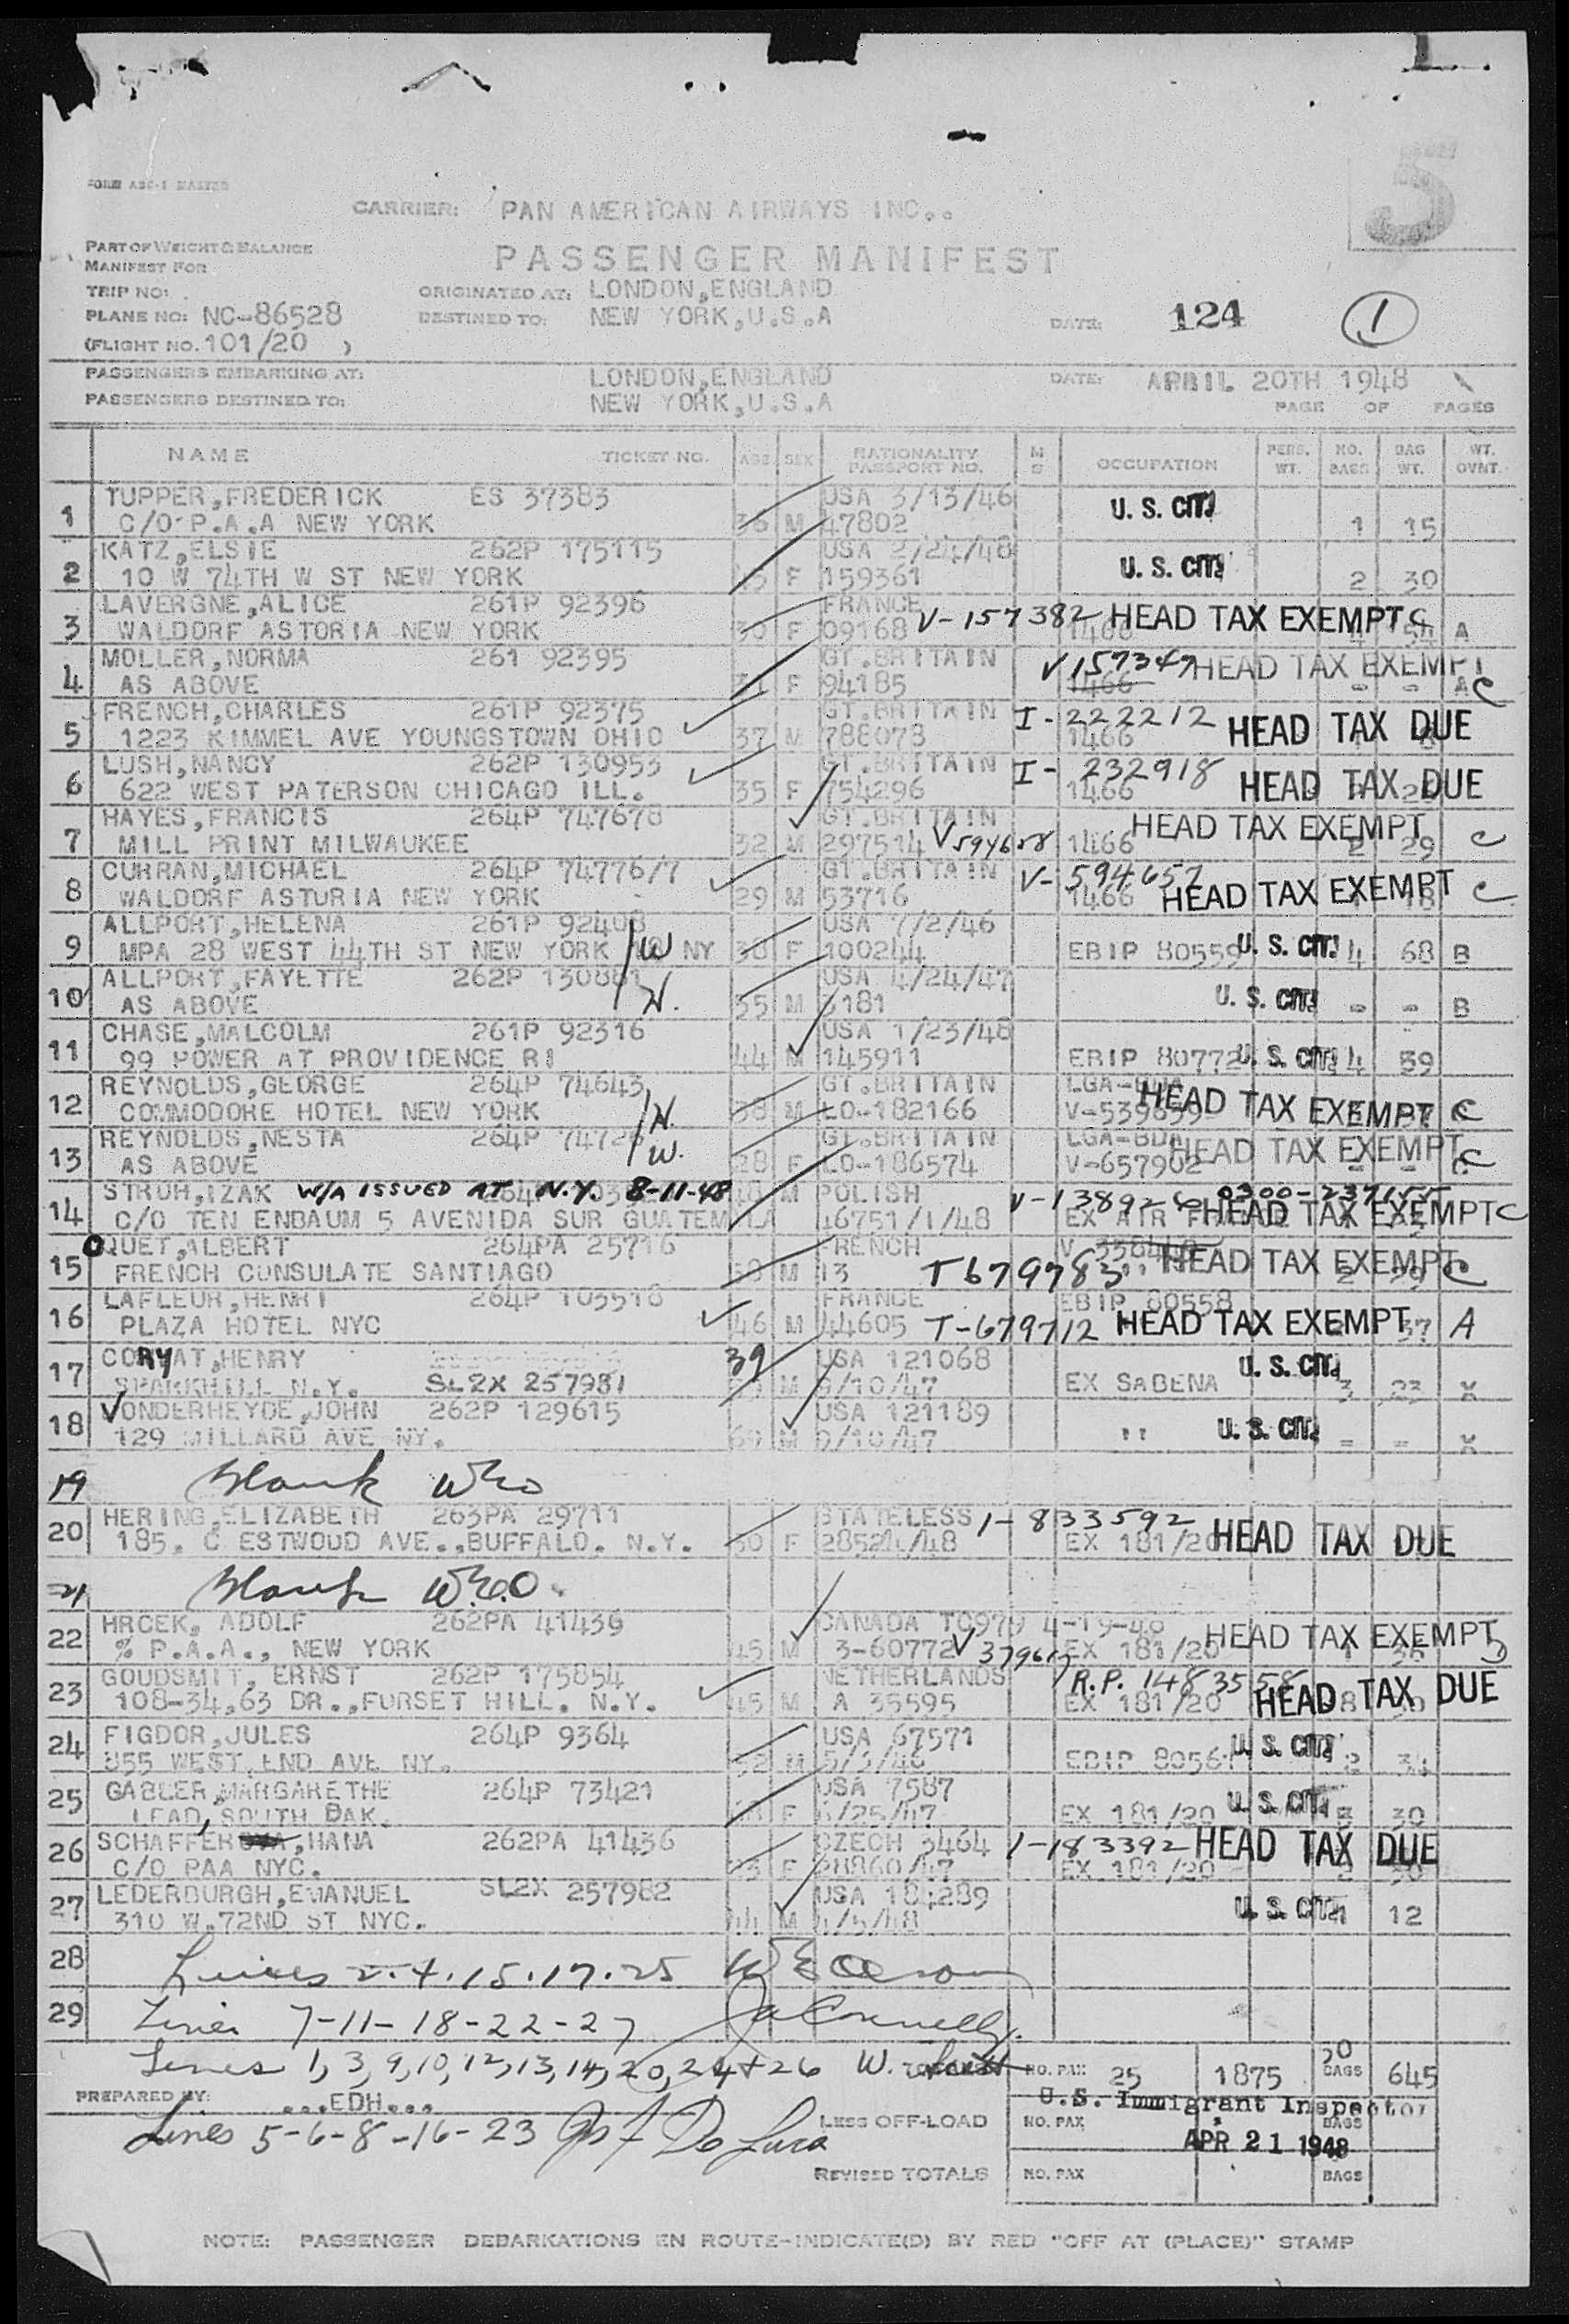 FORM ABC-1 MASTER
CARRIER: PAN AMERICAN AIRWAYS INC..
5
PART OF WEIGHT & BALANCE
MANIFEST FOR
PASSENGER MANIFEST
TRIP NO: ORIGINATED AT: LONDON,ENGLAND
PLANE NO: NC-86528 DESTINED TO: NEW YORK,U.S.A DATE: 124 1
(FLIGHT NO. 101/20 )
PASSENGERS EMBARKING AT: LONDON,ENGLAND DATE: APRIL 20TH 1948
PASSENGERS DESTINED TO: NEW YORK,U.S.A PAGE OF PAGES
NAME TICKET NO. AGE SEX NATIONALITY PASSPORT NO. M S OCCUPATION PERS. WT. NO. BAGS BAG WT. WT. OVNT.
1 TUPPER,FREDERICK ES 37383 USA 3/13/46 U. S. CIT.
C/O P.A.A NEW YORK 36 M 47802 1 15
2 KATZ,ELSIE 262P 175115 USA 2/24/48 U. S. CIT.
10 W 74TH W ST NEW YORK F 159361 2 30
3 LAVERGNE,ALICE 261P 92396 FRANCE V-157382 HEAD TAX EXEMPT C
WALDORF ASTORIA NEW YORK 30 F 09168 1466 54 A
4 MOLLER,NORMA 261 92395 GT.BRITAIN V157347 HEAD TAX EXEMPT
AS ABOVE F 94185 1466 - - A C
5 FRENCH,CHARLES 261P 92375 GT.BRITAIN I-222212 HEAD TAX DUE
1223 KIMMEL AVE YOUNGSTOWN OHIO 37 M 788078 1466
6 LUSH,NANCY 262P 130953 GT.BRITAIN I-232918 HEAD TAX DUE
622 WEST PATERSON CHICAGO ILL. 35 F 754296 1466
7 HAYES,FRANCIS 264P 747678 GT.BRITAIN HEAD TAX EXEMPT
MILL PRINT MILWAUKEE 32 M 297514 V594658 1466 2 29 C
8 CURRAN,MICHAEL 264P 74776/7 GT.BRITAIN V-594657 HEAD TAX EXEMPT C
WALDORF ASTORIA NEW YORK 29 M 53716 1466 18
9 ALLPORT,HELENA 261P 92408 USA 7/2/46 U. S. CIT.
MPA 28 WEST 44TH ST NEW YORK NY W 38 F 100244 EBIP 80559 4 68 B
10 ALLPORT,FAYETTE 262P 130881 USA 4/24/47 U. S. CIT.
AS ABOVE H. 55 M 3181 - - B
11 CHASE,MALCOLM 261P 92316 USA 1/23/48
99 POWER AT PROVIDENCE RI 44 M 145911 EBIP 80772 U. S. CIT. 4 59
12 REYNOLDS,GEORGE 264P 74643 GT.BRITAIN LGA-BDA HEAD TAX EXEMPT C
COMMODORE HOTEL NEW YORK H. 38 M LO-182166 V-539659
13 REYNOLDS,NESTA 264P 74726 GT.BRITAIN LGA-BDA HEAD TAX EXEMPT C
AS ABOVE W. 28 F LO-186574 V-657902 - -
14 STROH,IZAK W/A ISSUED AT N.Y. 8-11-48 M POLISH V-13892 0300-237155
C/O TEN ENBAUM 5 AVENIDA SUR GUATEMALA 46751/1/48 EX AIR FRANCE HEAD TAX EXEMPT C
15 OQUET,ALBERT 264PA 25716 FRENCH HEAD TAX EXEMPT C
FRENCH CONSULATE SANTIAGO M 13 T679783 2 29
16 LAFLEUR,HENRI 264P 103518 FRANCE EBIP 80558
PLAZA HOTEL NYC 46 M 44605 T-679712 HEAD TAX EXEMPT 37 A
17 CORYAT,HENRY 39 USA 121068 U. S. CIT.
SPARKHILL N.Y. SL2X 257981 M 9/10/47 EX SABENA 3 23 X
18 VONDERHEYDE,JOHN 262P 129615 USA 121189 U. S. CIT.
129 MILLARD AVE NY. 69 M 9/10/47 '' - - X
19 Blank WEO
20 HERING,ELIZABETH 263PA 29711 STATELESS 1-833592 HEAD TAX DUE
185. C ESTWOOD AVE.,BUFFALO. N.Y. 50 F 28524/48 EX 181/20
21 Blank W.E.O.
22 HRCEK, ADOLF 262PA 41439 CANADA TC979 4-19-48 HEAD TAX EXEMPT
% P.A.A., NEW YORK 45 M 3-60772 V EX 181/20 1 35
23 GOUDSMIT, ERNST 262P 175854 NETHERLANDS R.P. 1483558 HEAD TAX DUE
108-34,63 DR.,FORSET HILL. N.Y. 45 M A 35595 EX 181/20
24 FIGDOR,JULES 264P 9364 USA 67571 U. S. CIT.
855 WEST END AVE NY. 52 M 5/3/46 EBIP 80561 2 34
25 GABLER,MARGARETHE 264P 73421 USA 7587 U. S. CIT.
LEAD, SOUTH DAK. F 6/25/47 EX 181/20 30
26 SCHAFFER,HANA 262PA 41436 CZECH 3464 1-183392 HEAD TAX DUE
C/O PAA NYC. F 28860/47 EX 181/20 2
27 LEDERBURGH,EMANUEL SL2X 257982 USA 184289 U. S. CIT.
310 W.72ND ST NYC. 44 M 4/5/48 1 12
28 Lines 2.4.15.17.25 W E Olson
29 Lines 7-11-18-22-27 Ja Connelly.
Lines 1, 3, 9, 10, 12, 13, 14, 20, 24 + 26 W. NO. PAX 25 1875 30 BAGS 645
PREPARED BY: ...EDH... U.S. Immigrant Inspector
Lines 5-6-8-16-23 Jos F De Luca LESS OFF-LOAD NO. PAX BAGS
APR 21 1948
REVISED TOTALS NO. PAX BAGS
NOTE: PASSENGER DEBARKATIONS EN ROUTE-INDICATE(D) BY RED "OFF AT (PLACE)" STAMP